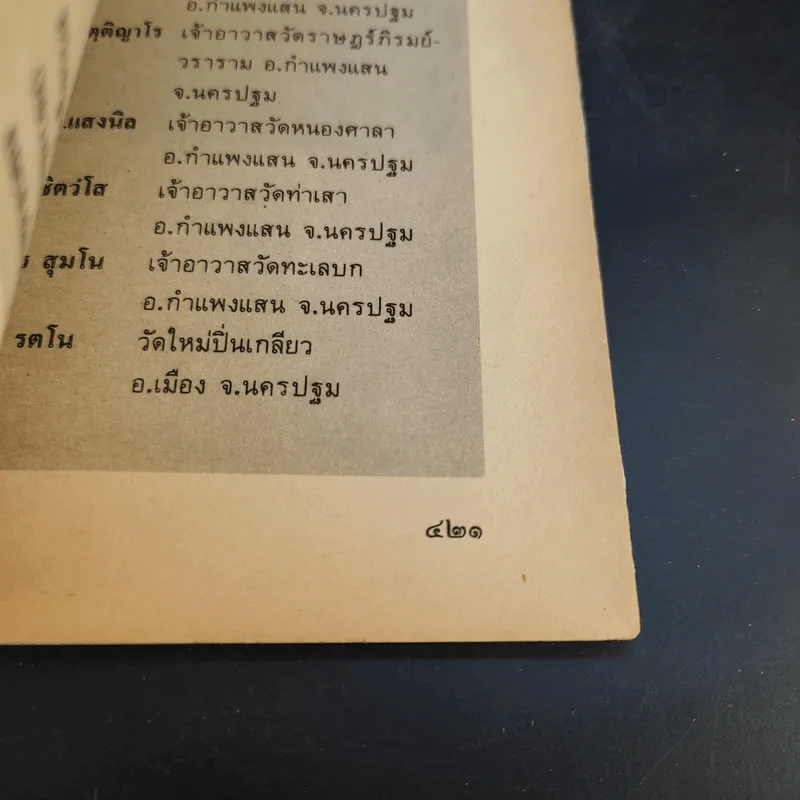 อ.กำแพงแสน จ.นครปฐม
เจ้าอาวาสวัดราษฎร์ภิรมย์-
วราราม อ.กำแพงแสน
จ.นครปฐม
แสงนิล เจ้าอาวาสวัดหนองศาลา
อ.กำแพงแสน จ.นครปฐม
เจ้าอาวาสวัดท่าเสา
อ.กำแพงแสน จ.นครปฐม
สุมโน เจ้าอาวาสวัดทะเลบก
อ.กำแพงแสน จ.นครปฐม
รตโน วัดใหม่ปิ่นเกลียว
อ.เมือง จ.นครปฐม
๔๒๑